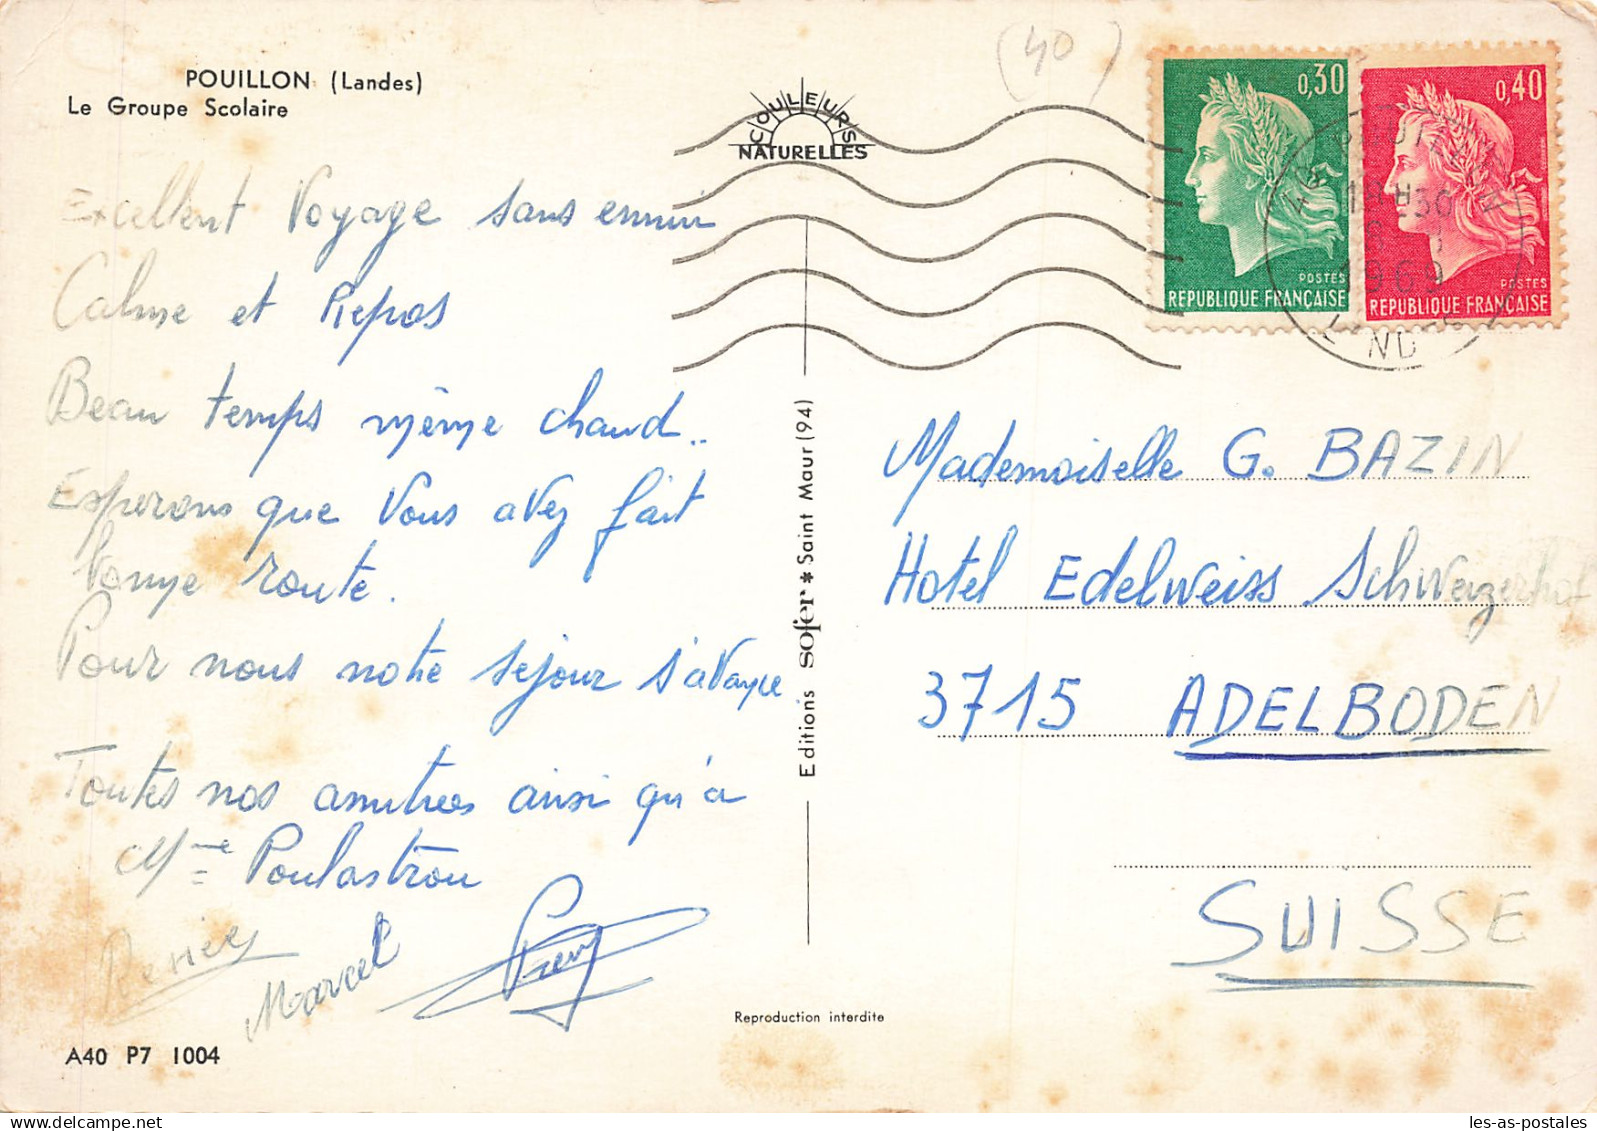 POUILLON (Landes)
Le Groupe Scolaire
(40)
COULEURS
NATURELLES
0,30
POSTES
REPUBLIQUE FRANÇAISE
0,40
POSTES
REPUBLIQUE FRANÇAISE
40 POUILLON
19H30
1969
LANDES
Excellent Voyage sans ennui
Calme et Repos
Beau temps même chaud..
Esperons que Vous avez fait
bonne route.
Pour nous notre sejour s'avance
Toutes nos amitiees ainsi qu'a
Mme Poulastrou
Renée
Marcel
Editions sofer * Saint Maur (94)
Mademoiselle G. BAZIN
Hotel Edelweiss Schweizerhof
3715 ADELBODEN
SUISSE
Reproduction interdite
A40 P7 1004
les-as-postales